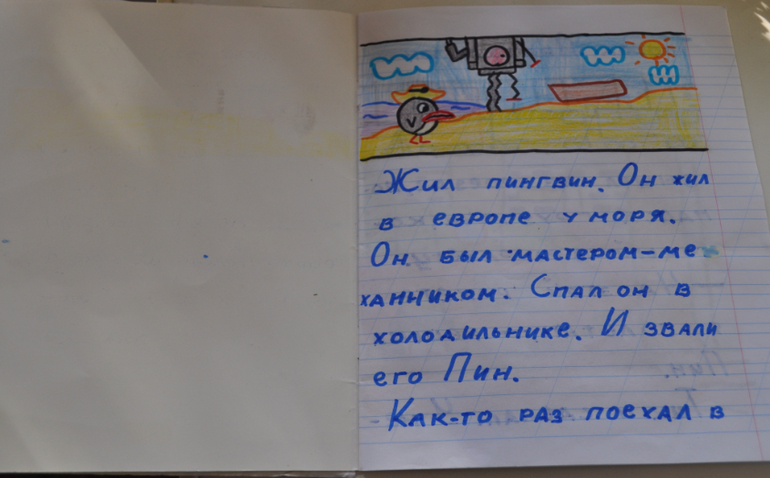 Жил пингвин. Он жил
в европе у моря.
Он был мастером-ме
ханником. Спал он в
холодильнике. И звали
его Пин.
Как-то раз поехал в